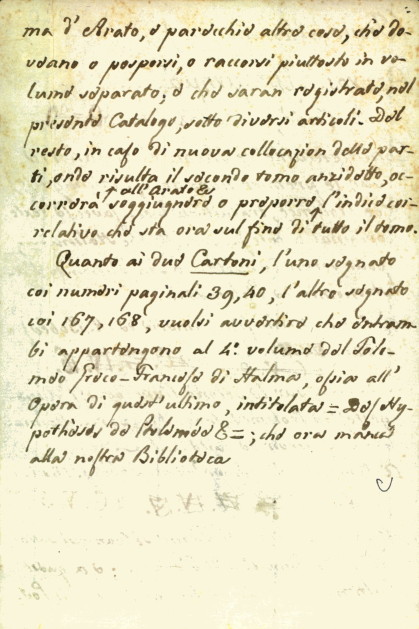 ma d'Arato, e parecchie altre cose, che do-
veano o posporsi, o raccorsi piuttosto in vo-
lume separato; e che saran registrate, nel
presente Catalogo, sotto diversi articoli. Del
resto, in caso di nuova collocazion delle par-
ti, onde risulta il secondo tomo anzidetto, oc-
correrà soggiugnere all'Arato &c
o preporre, l'indice cor-
relativo che sta ora sul fine di tutto il tomo.
Quanto ai due Cartoni, l'uno segnato
coi numeri paginali 39, 40, l'altro segnato
coi 167, 168, vuolsi avvertire che entram-
bi appartengono al 4.º volume del Tole-
meo Greco-Francese di Halma, ossia all'
Opera di quest'ultimo, intitolata = Des Hy-
pothèses de Ptolémée & =; che ora manca
alla nostra Biblioteca